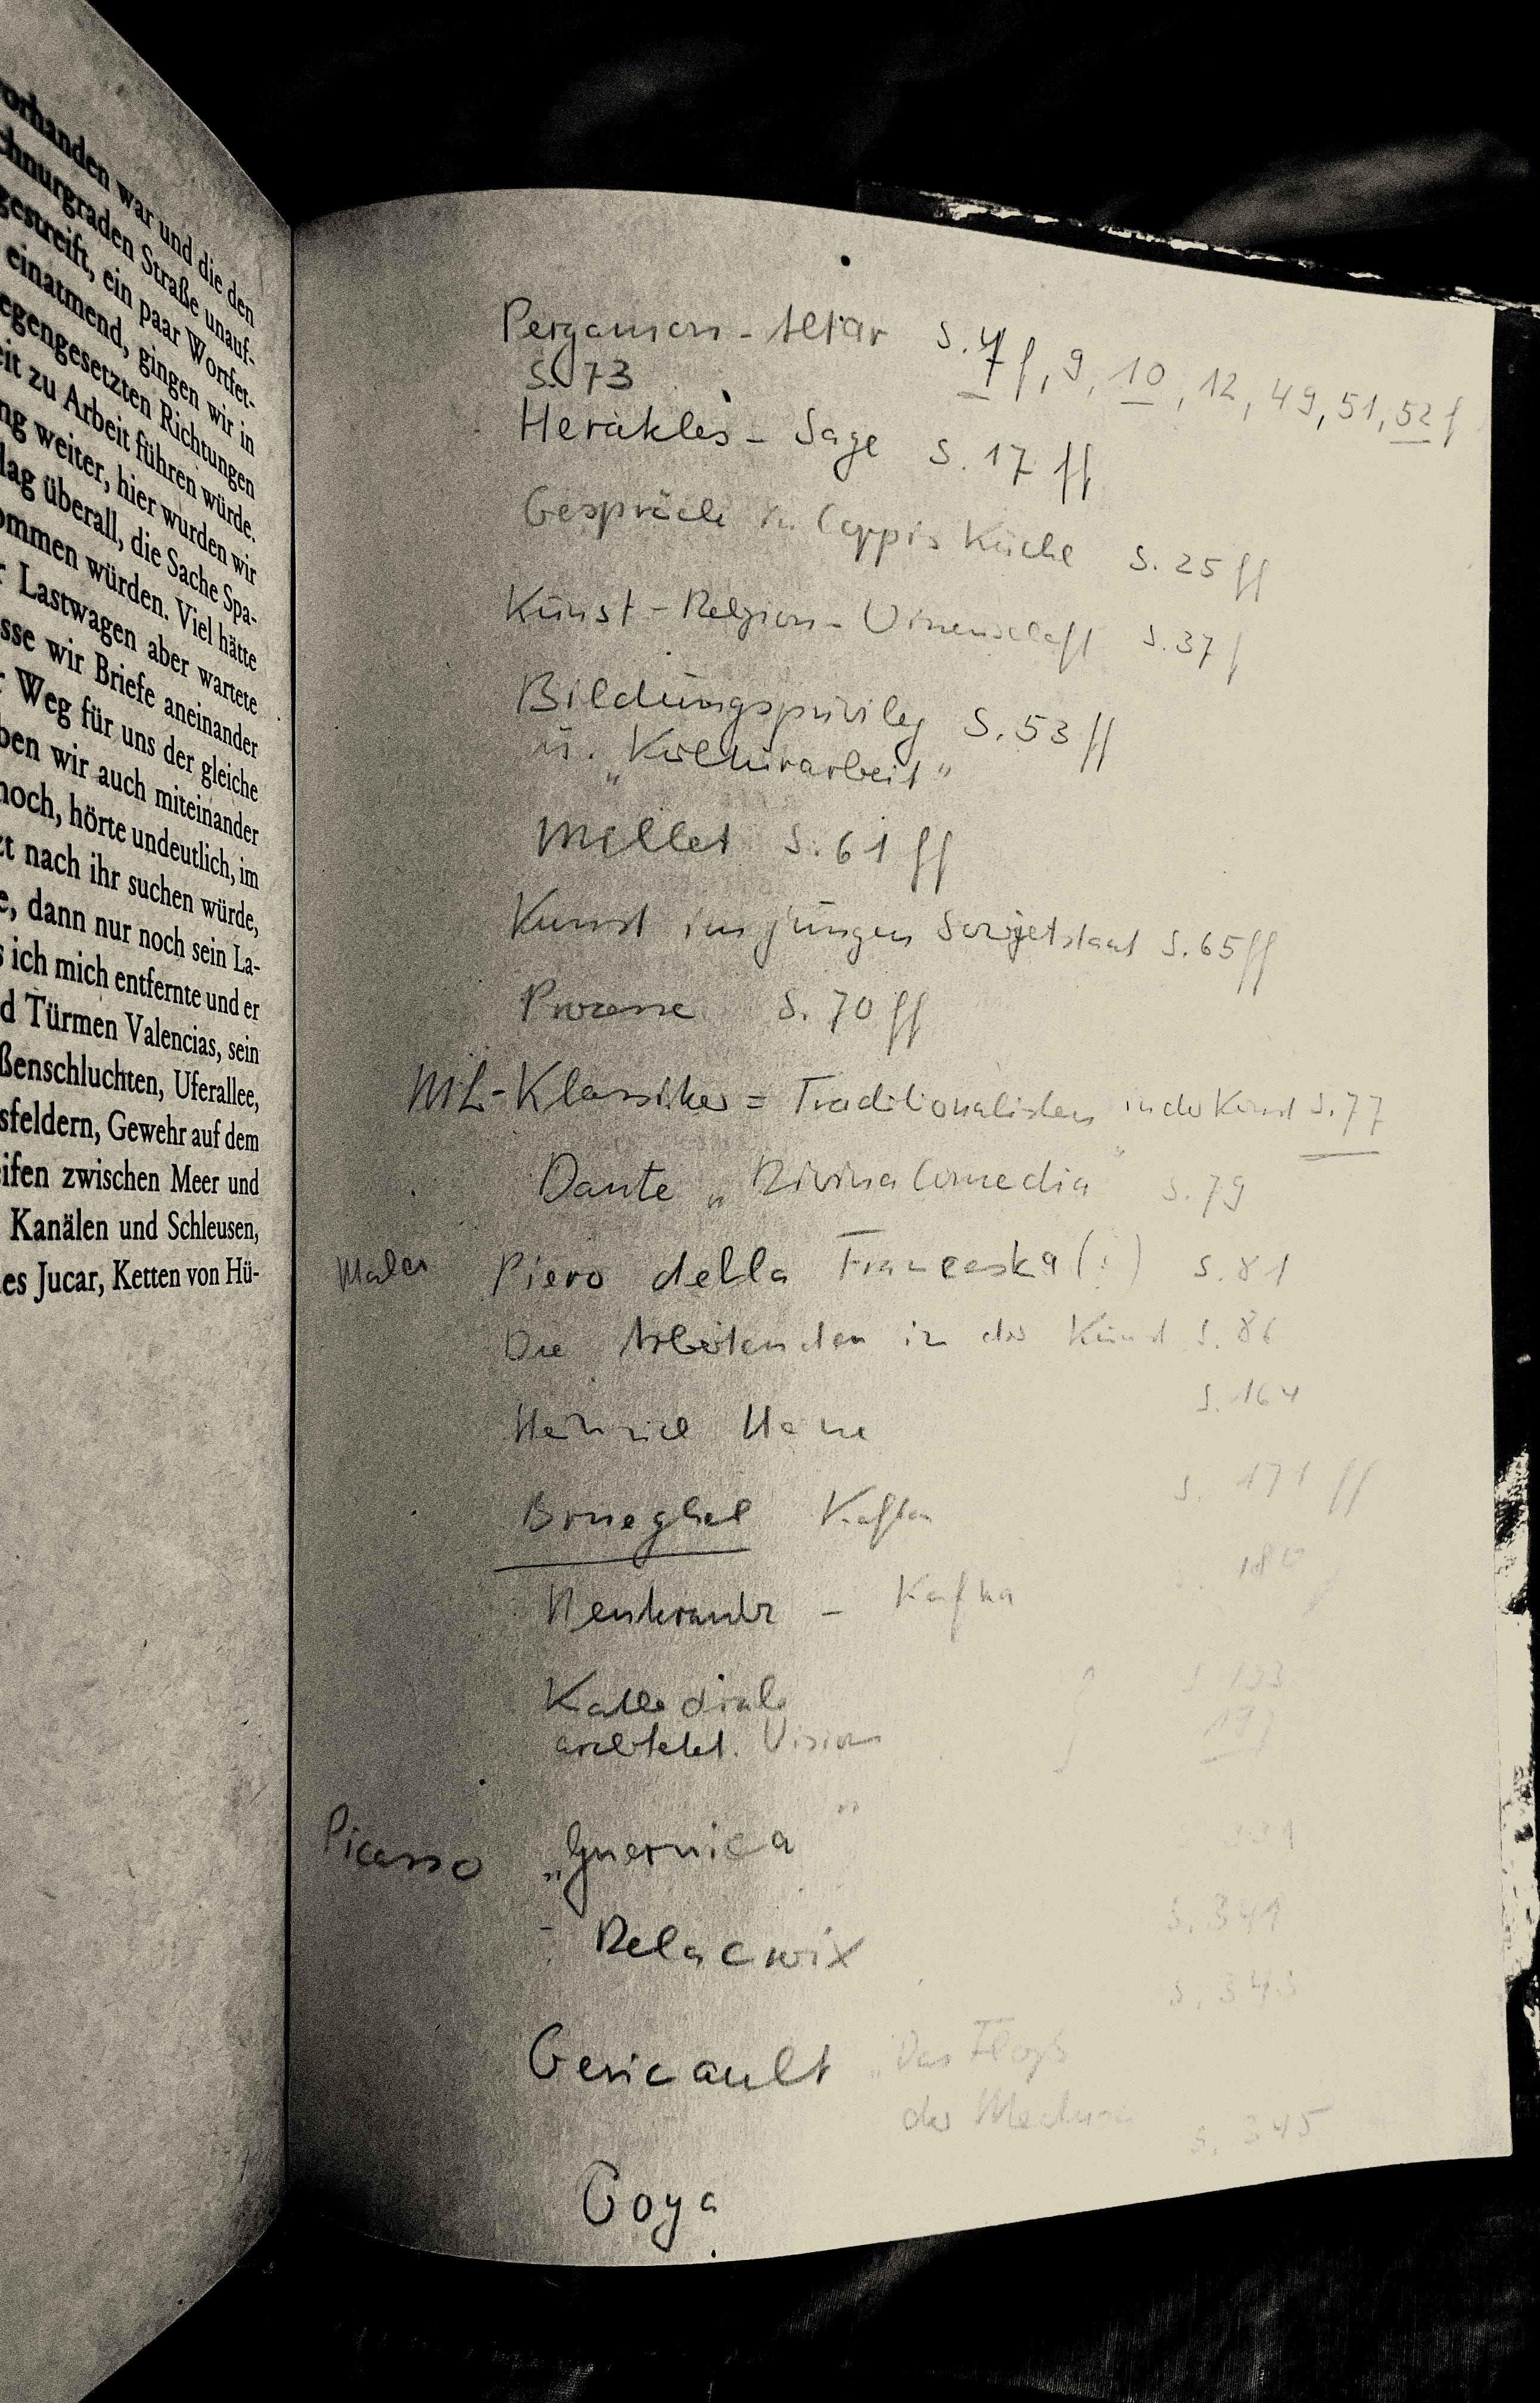 vorhanden war und die den
schnurgraden Straße unauf-
gestreift, ein paar Wortfet-
einatmend, gingen wir in
egengesetzten Richtungen
eit zu Arbeit führen würde.
ng weiter, hier wurden wir
lag überall, die Sache Spa-
ommen würden. Viel hätte
r Lastwagen aber wartete
sse wir Briefe aneinander
r Weg für uns der gleiche
ben wir auch miteinander
noch, hörte undeutlich, im
zt nach ihr suchen würde,
e, dann nur noch sein La-
s ich mich entfernte und er
d Türmen Valencias, sein
ßenschluchten, Uferallee,
sfeldern, Gewehr auf dem
eifen zwischen Meer und
Kanälen und Schleusen,
es Jucar, Ketten von Hü-
Pergamon-Altar S. 7f, 9, 10, 12, 49, 51, 52f
S. 73
Herakles-Sage S. 17 ff
Gespräch in Coppis Küche S. 25 ff
Kunst-Religion-Wissenschaft S. 37 f
Bildungsprivileg S. 53 ff
u. „Kulturarbeit"
Millet S. 61 ff
Kunst im jungen Sowjetstaat S. 65 ff
Prozesse S. 70 ff
ML-Klassiker = Traditionalisten in der Kunst S. 77
Dante „Divina Comedia" S. 79
Maler Piero della Franceska (!) S. 81
Die Arbeitenden in der Kunst S. 86
Heinrich Heine S. 164
Brueghel Kafka S. 171 ff
Neukrantz - Kafka
Kathedrale
architekt. Vision
Picasso „Guernica"
- Delacroix S. 341
S. 343
Gericault „Das Floß
der Medusa S. 345
Goya